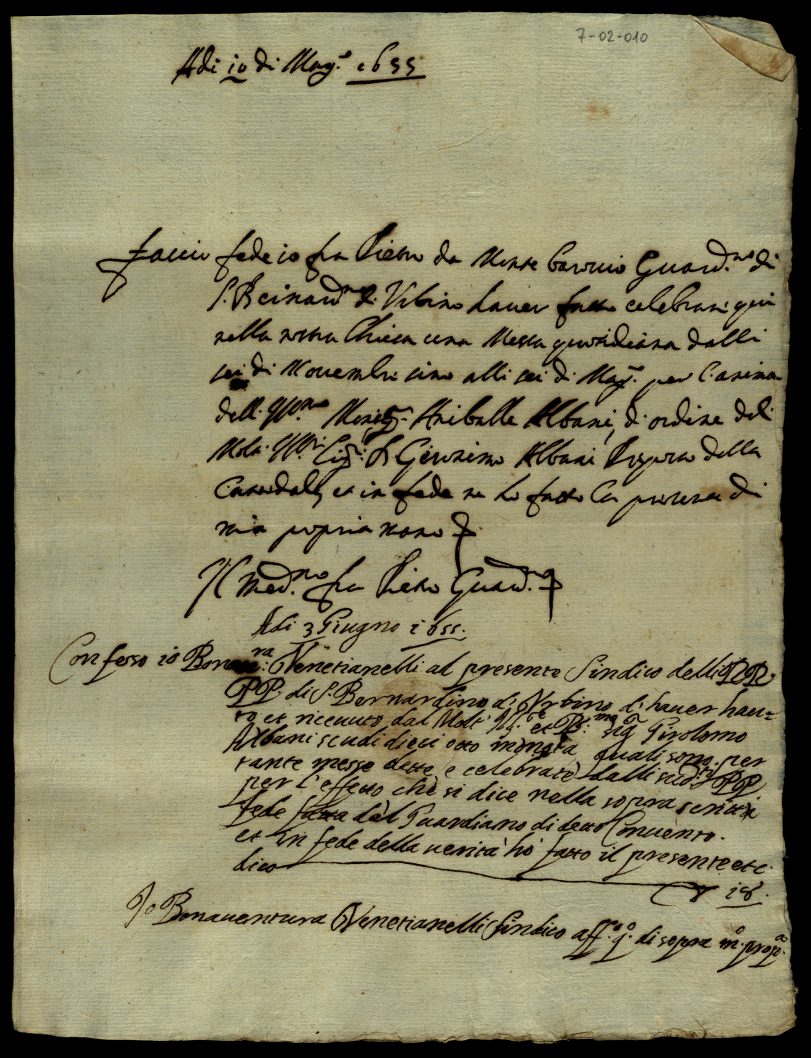 7-02-010
Adi 10 di Mag.º 1655
Faccio fede io fra Pietro da Monte Baroccio Guard.no di
S. Bernard.no d'Urbino haver fatto celebrare qui
nella nostra Chiesa una Messa quotidiana dalli
sei di Novembre sino alli sei di Mag.º per l'anima
dell' Ill.mo Monsig.r Aniballe Albani, d'ordine del
Molt' Ill.re Sig.r Gieronimo Albani Proposto della
Catedale, et in fede ne ho fatto la presente di
mia propria mano
Il med.mo fra Pietro Guard.no
Adi 3 Giugno 1655.
Confesso io Bonav.ra Venetianelli al presente Sindico delli RR.
PP. di S. Bernardino di Urbino d'haver hau=
to et ricevuto dal Molt' Ill.re et R.mo sig. Girolomo
Albani scudi dieci otto moneta quali sono per
tante messe dette e celebrate dalli sud.ti PP
per l'effetto che si dice nella sopra scritta
fede fatta dal Guardiano di detto Convento.
et in fede della verità hò fatto il presente etc
dico 18.
Io Bonaventura Venetianelli Sindico aff.º q.º di sopra m.º prop.ª